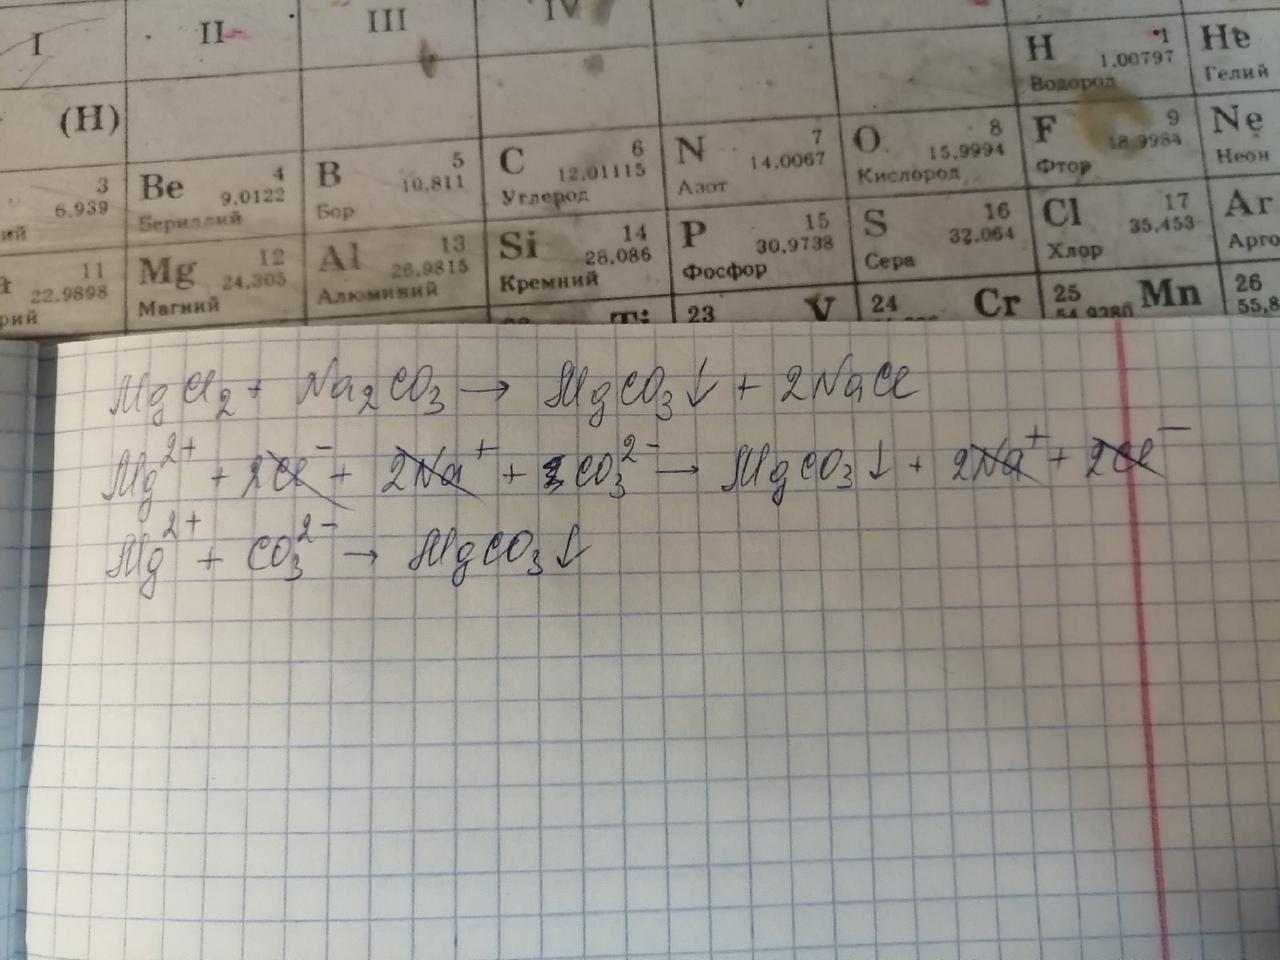 I II III IV V
(H) H 1 1.00797 Водород He Гелий
3 6.939 ий Be 4 9.0122 Бериллий B 5 10.811 Бор C 6 12.01115 Углерод N 7 14.0067 Азот O 8 15.9994 Кислород F 9 18.9984 Фтор Ne Неон
11 22.9898 рий Mg 12 24.305 Магний Al 13 26.9815 Алюминий Si 14 28.086 Кремний P 15 30.9738 Фосфор S 16 32.064 Сера Cl 17 35.453 Хлор Ar Арго
Ti 23 V 24 Cr 25 Mn 54.9380 26 55,8
MgCl₂ + Na₂CO₃ → MgCO₃↓ + 2NaCl
Mg²⁺ + 2Cl⁻ + 2Na⁺ + CO₃²⁻ → MgCO₃↓ + 2Na⁺ + 2Cl⁻
Mg²⁺ + CO₃²⁻ → MgCO₃↓